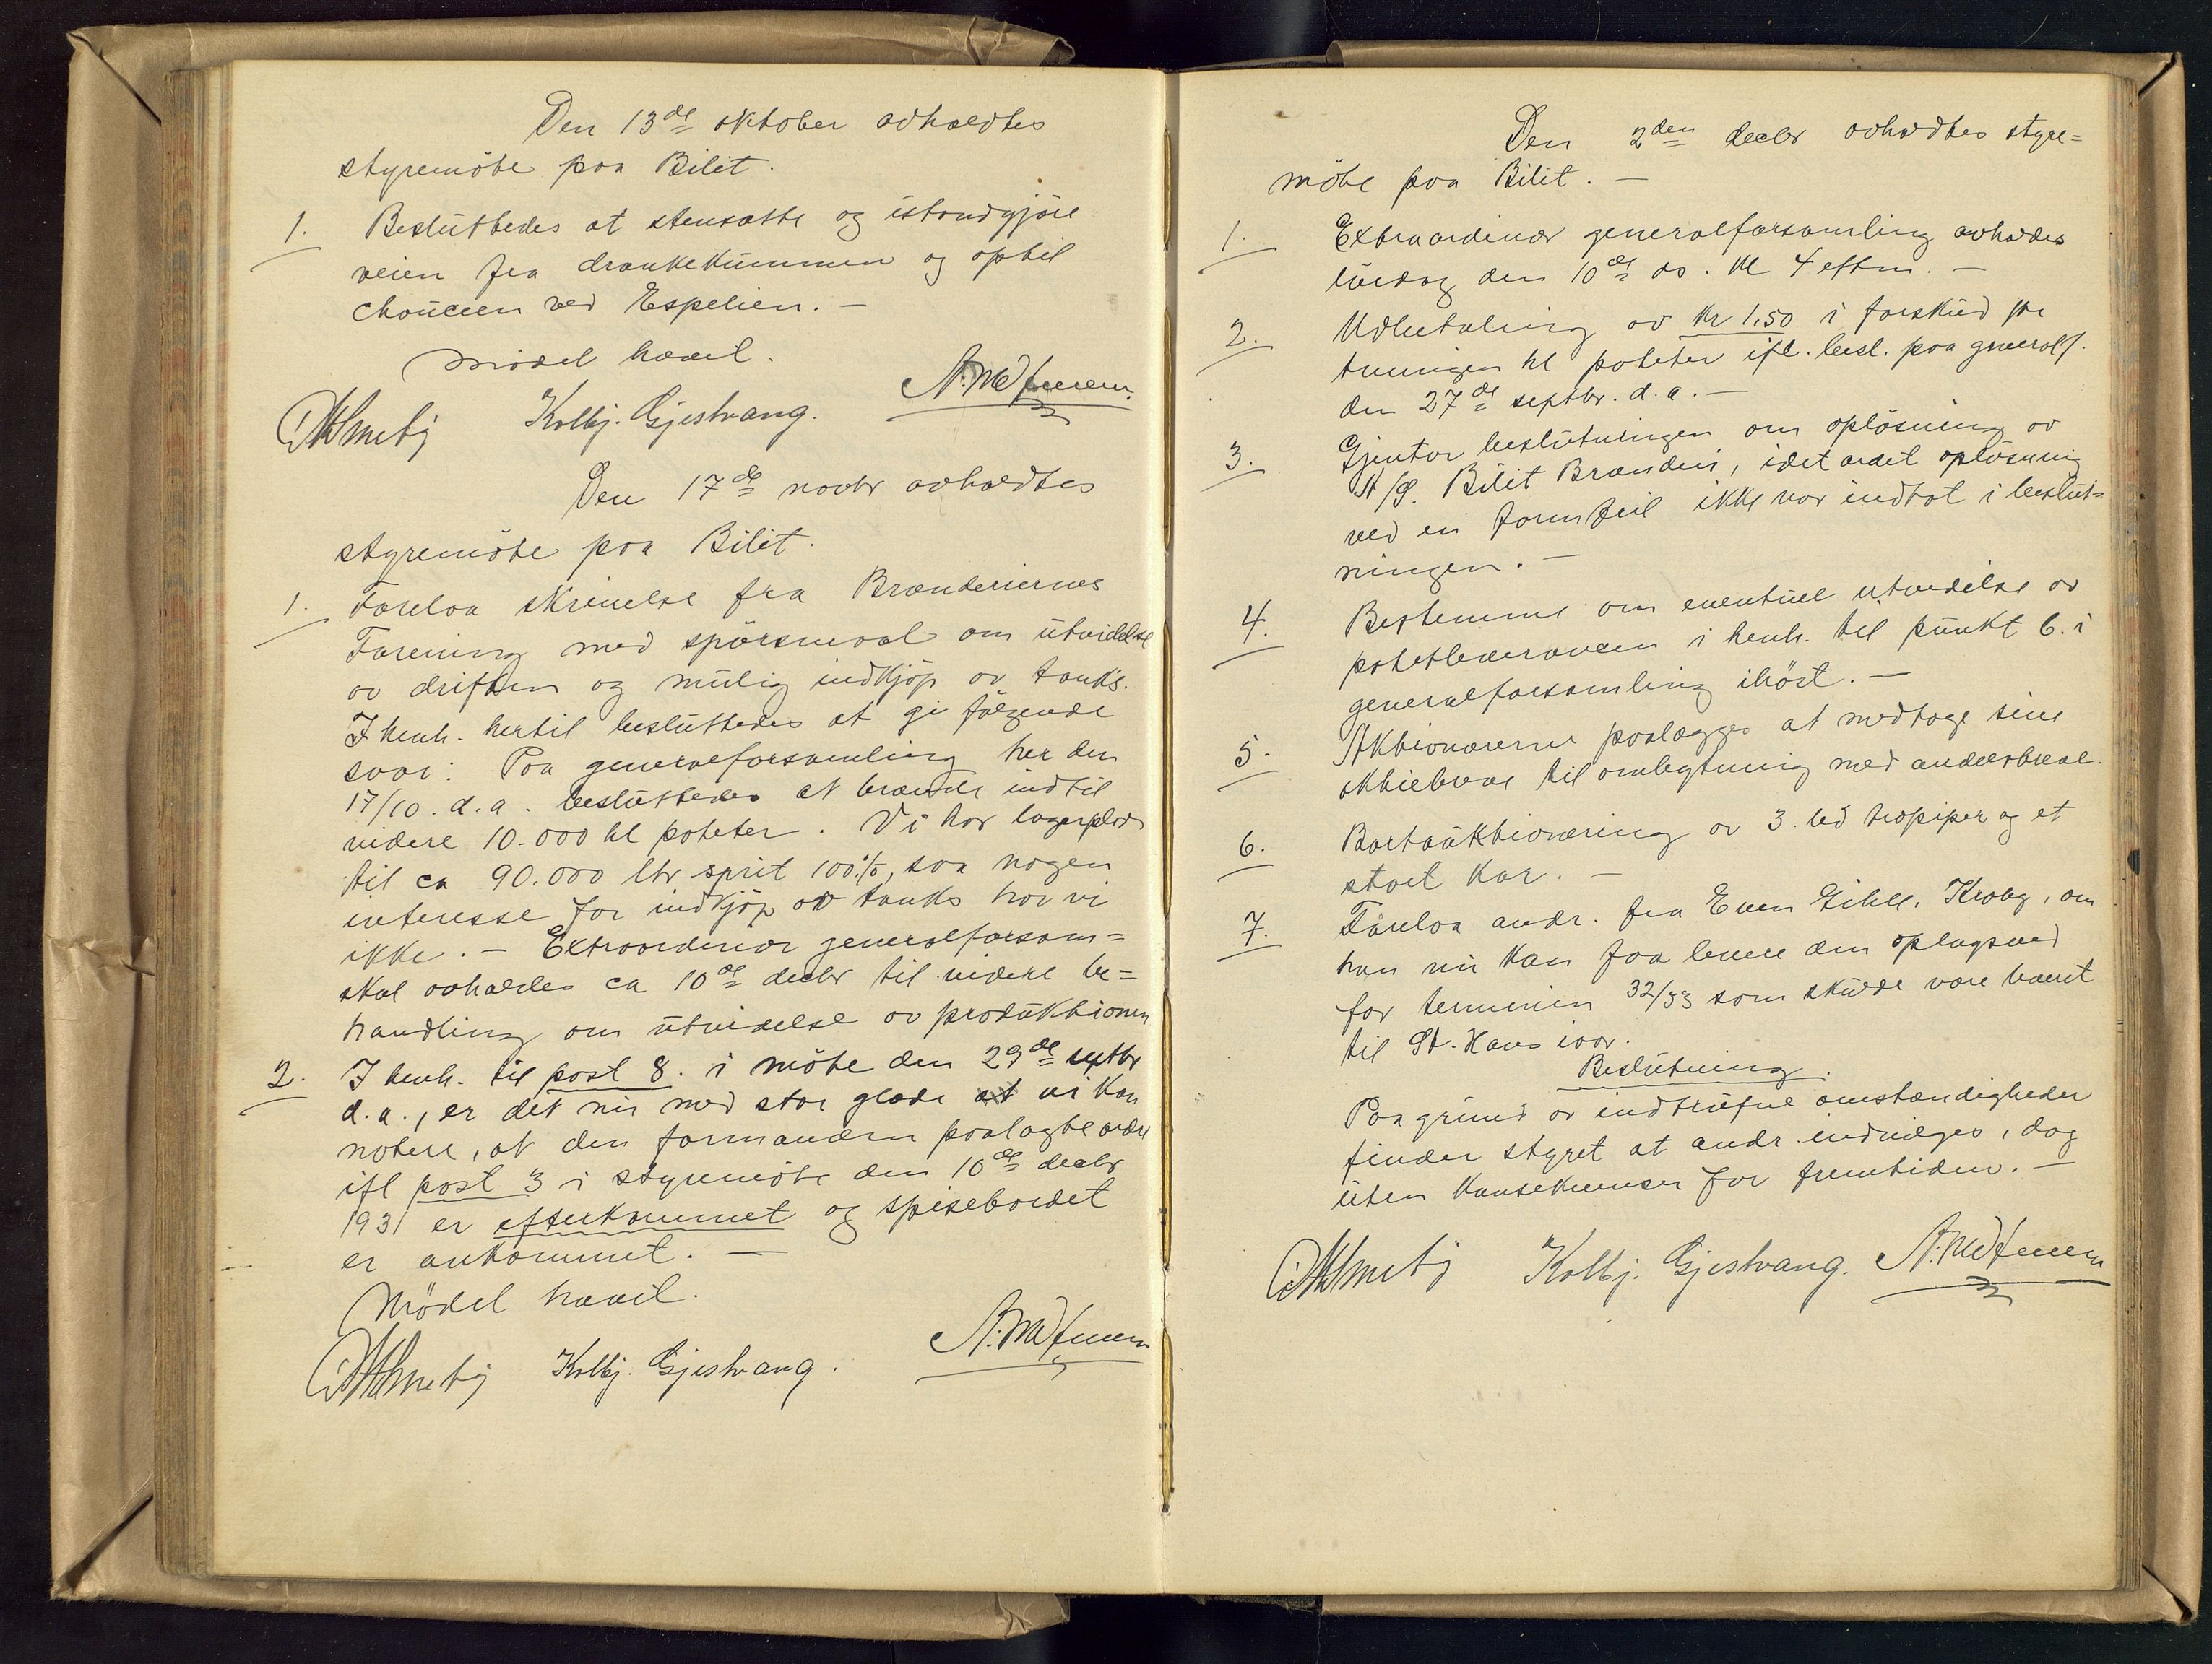 Den 13de oktober avholdtes
styremöte paa Bilit.
1. Besluttedes at stensætte og istandgjöre
veien fra drankekummen og optil
chauceen ved Espelien. —
Mödet hævet.
Kolbj. Gjestvang.
Den 17de novbr avholdtes
styremöte paa Bilit.
1. Forelaa skrivelse fra Brænderiernes
Forening med spörsmaal om utvidelse
av driften og mulig indkjöp av tanks.
I henh. hertil besluttedes at gi fölgende
svar: Paa generalforsamling her den
17/10. d.a. besluttedes at brænde indtil
videre 10.000 hl poteter. Vi har lagerplads
til ca 90.000 ltr sprit 100%, saa nogen
interesse for indkjöp av tanks har vi
ikke. — Extraordinær generalforsam=
skal avholdes ca 10de decbr til videre be=
handling om utvidelse av produktionen
2. I henh. til post 8. i möte den 29de septbr
d.a., er det nu med stor glæde at vi kan
notere, at den formanden paalagte ordre
ifl post 3 i styremöte den 10de decbr
1931 er efterkommet og spisebordet
er ankommet. —
Mödet hævet.
Kolbj. Gjestvang.
Den 2den decbr avholdtes styre=
möte paa Bilit. —
1. Extraordinær generalforsamling avholdes
lördag den 10de ds. kl 4 eftm. —
2. Udbetaling av kr 1,50 i forskud pr
hl poteter ifl. besl. paa generalf.
den 27de septbr. d.a. —
3. Gjentar beslutningen om oplösning av
A/S. Bilit Brænderi, idet ordet oplösning
ved en formfeil ikke var indtat i beslut=
ningen. —
4. Bestemme om eventuel utvidelse av
potetleverancen i henh. til punkt 6. i
generalforsamling ihöst. —
5. Aktionærerne paalægges at medtage sine
aktiebreve til ombytning med andelsbreve.
6. Bortauktionering av 3. led træpiper og et
stort kar. —
7. Forelaa andr. fra Even Eihle, Kraby, om
han nu kan faa levere den oplagsved
for terminen 32/33 som skulde være levert
til St. Hans ivår.
Beslutning.
Paa grund av indtrufne omstændigheder
finder styret at andr. indvilges, dog
uten konsekvenser for fremtiden. —
Kolbj. Gjestvang.